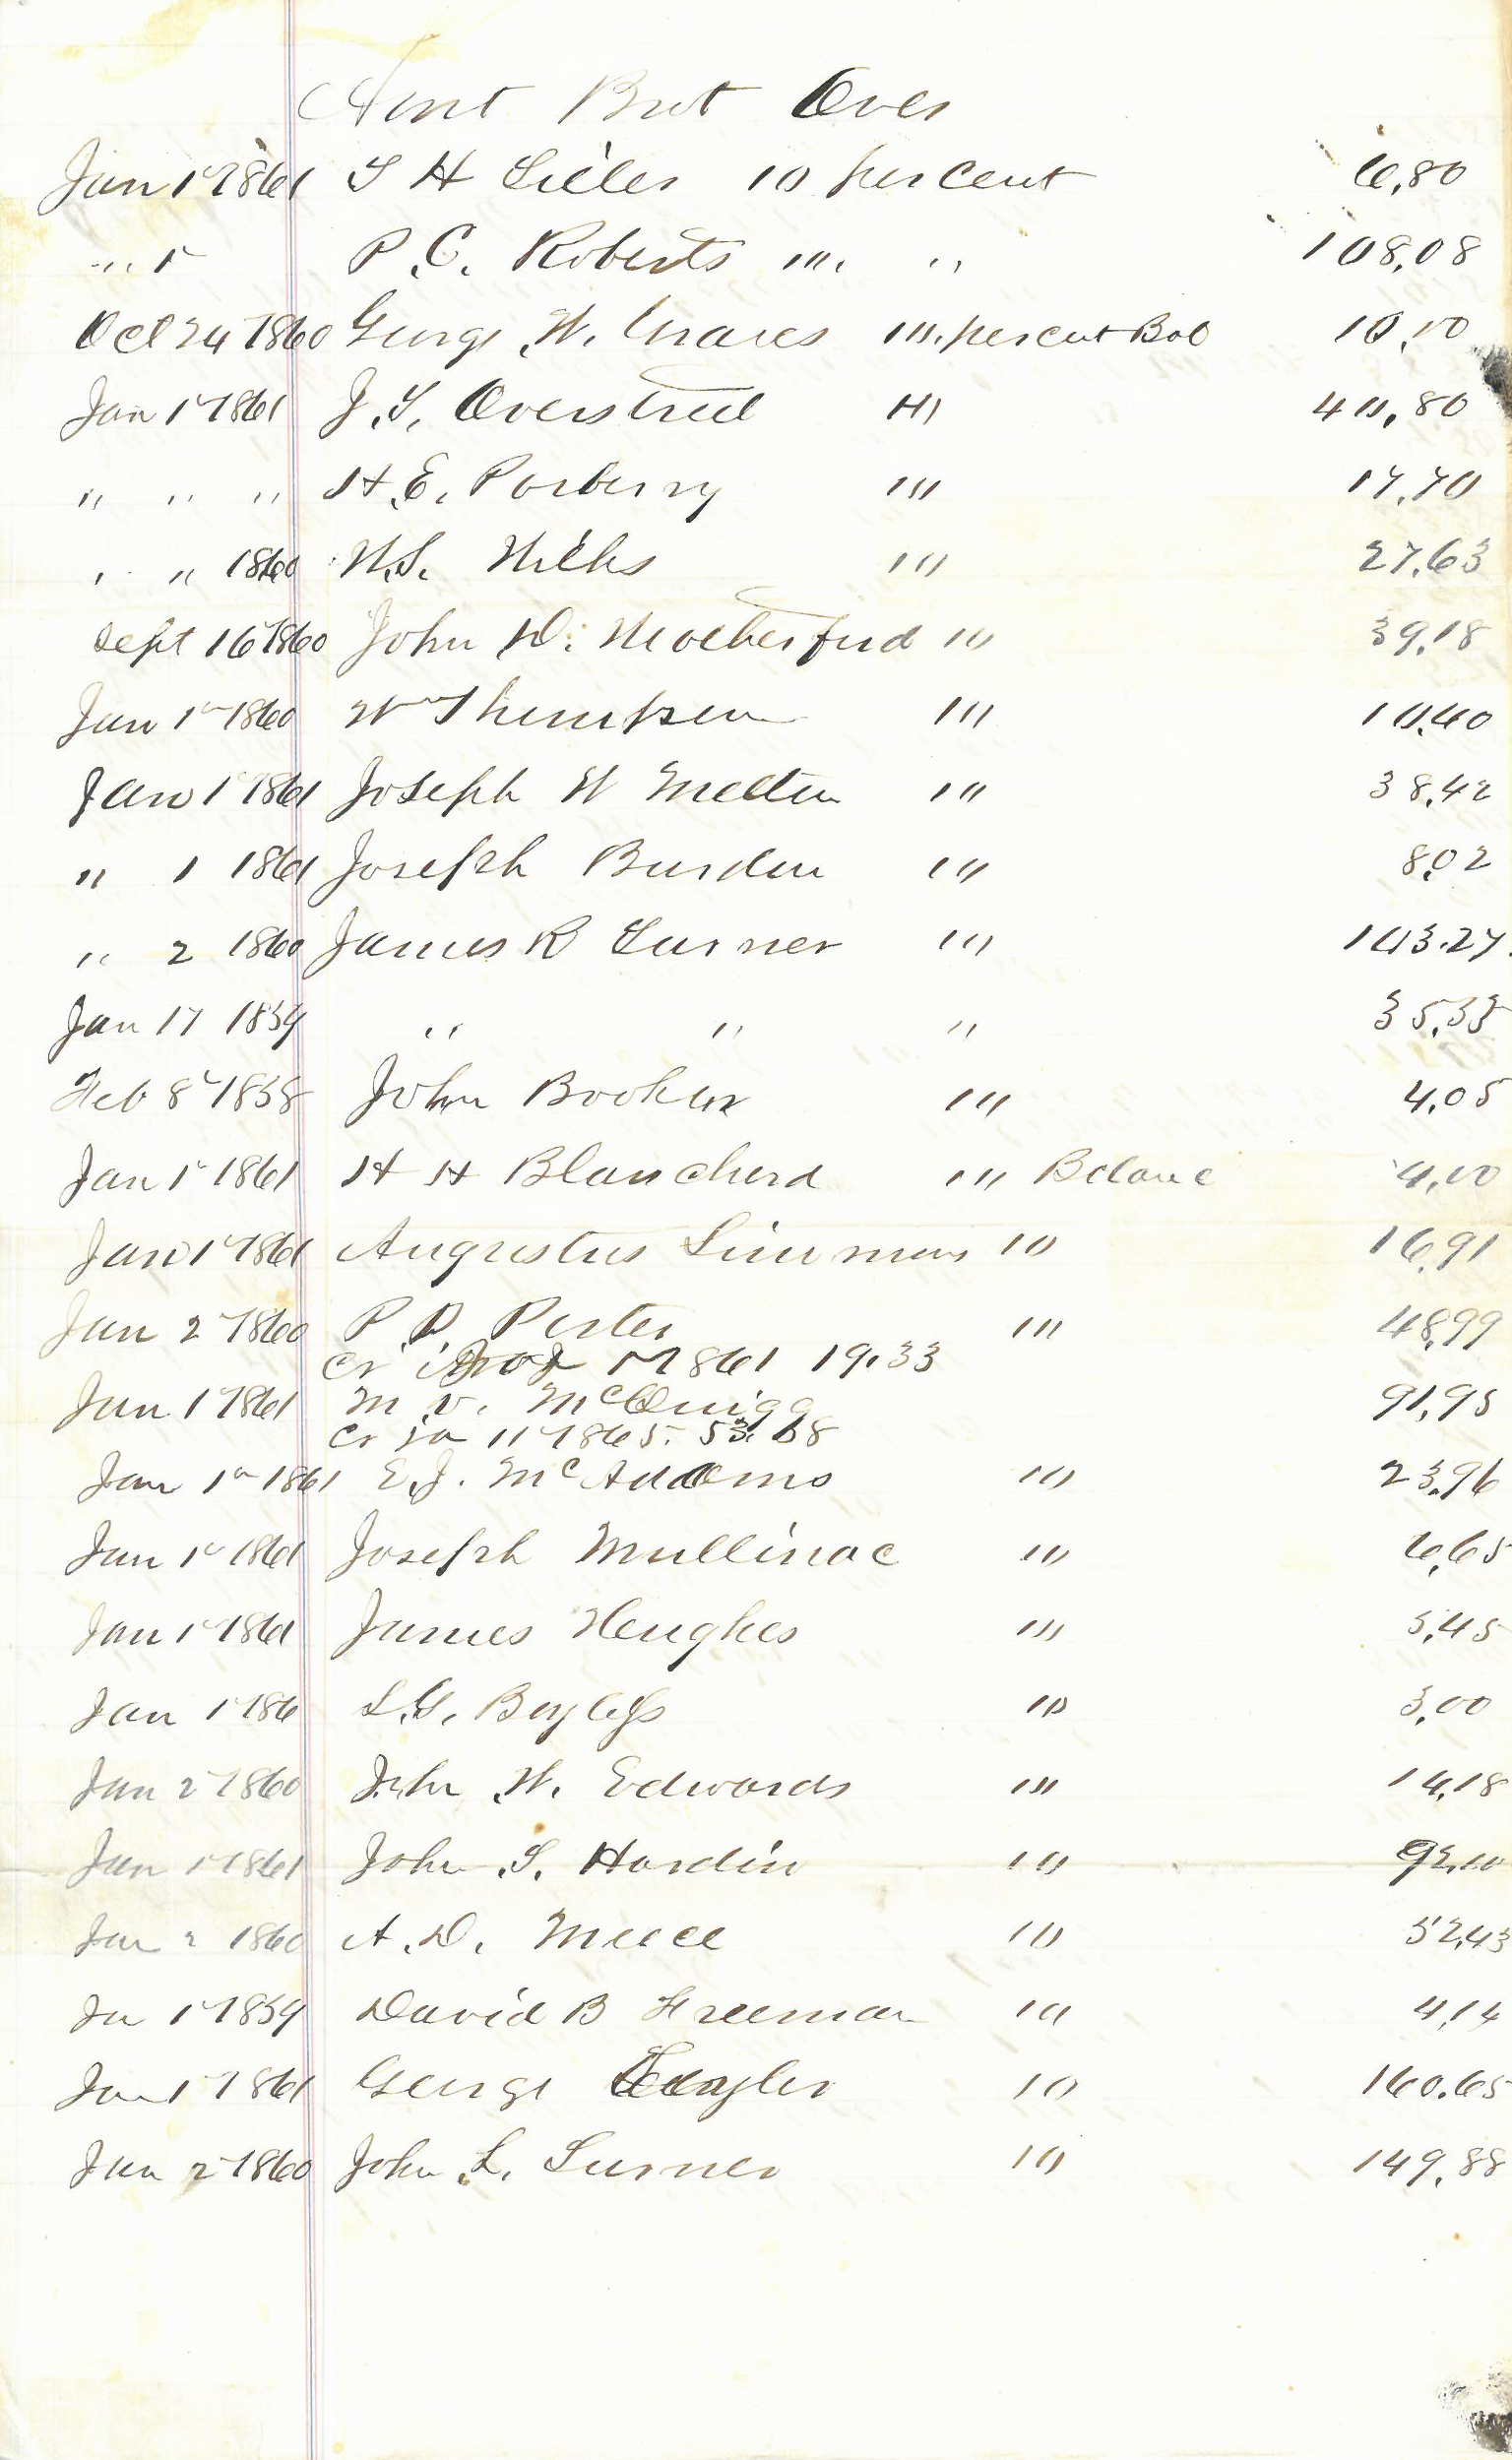 Amt Brot Over
Jan 1st 1861 T H Liles 10 per cent 6,80
" 1st P. C. Roberts 10 " 108,08
Oct 24 1860 George W. Graves 10 per cent Bal 10,00
Jan 1st 1861 J. T. Overstreet 10 40,80
" " " H. E. Posberry 10 17,70
" " 1860 W. S. Hicks 10 27,63
Sept 16 1860 John D. Motherford 10 39,18
Jan 1st 1860 Wm Thompson 10 10,40
Jan 1st 1861 Joseph W Melton 10 38,42
" 1 1861 Joseph Burden 10 8,02
" 2 1860 James R Turner 10 103.27
Jan 1st 1859 " " " 35,33
Feb 8th 1858 John Booker 10 4,05
Jan 1st 1861 H H Blancherd 10 Balance 4,00
Jan 1st 1861 Augustus Simmons 10 16,91
Jan 2nd 1860 P. D. Porter 10 48,99
Cr 1st 1861 19.33
Jan 1st 1861 M. V. McQuigg 91,95
Cr Ja 1st 1865. 53.68
Jan 1st 1861 E. J. McAdams 10 23,96
Jan 1st 1861 Joseph Mullinac 10 6,65
Jan 1st 1861 James Heughes 10 5,45
Jan 1st 186 L. G. Baylefs 10 3,00
Jan 2nd 1860 John W. Edwards 10 14,18
Jan 1st 1861 John T. Hardin 10 92,10
Jan 2 1860 A. D. Meece 10 52,43
Ja 1st 1859 David B Freeman 10 4,14
Jan 1st 1861 George Taylor 10 160.65
Jan 2nd 1860 John L. Turner 10 149,88